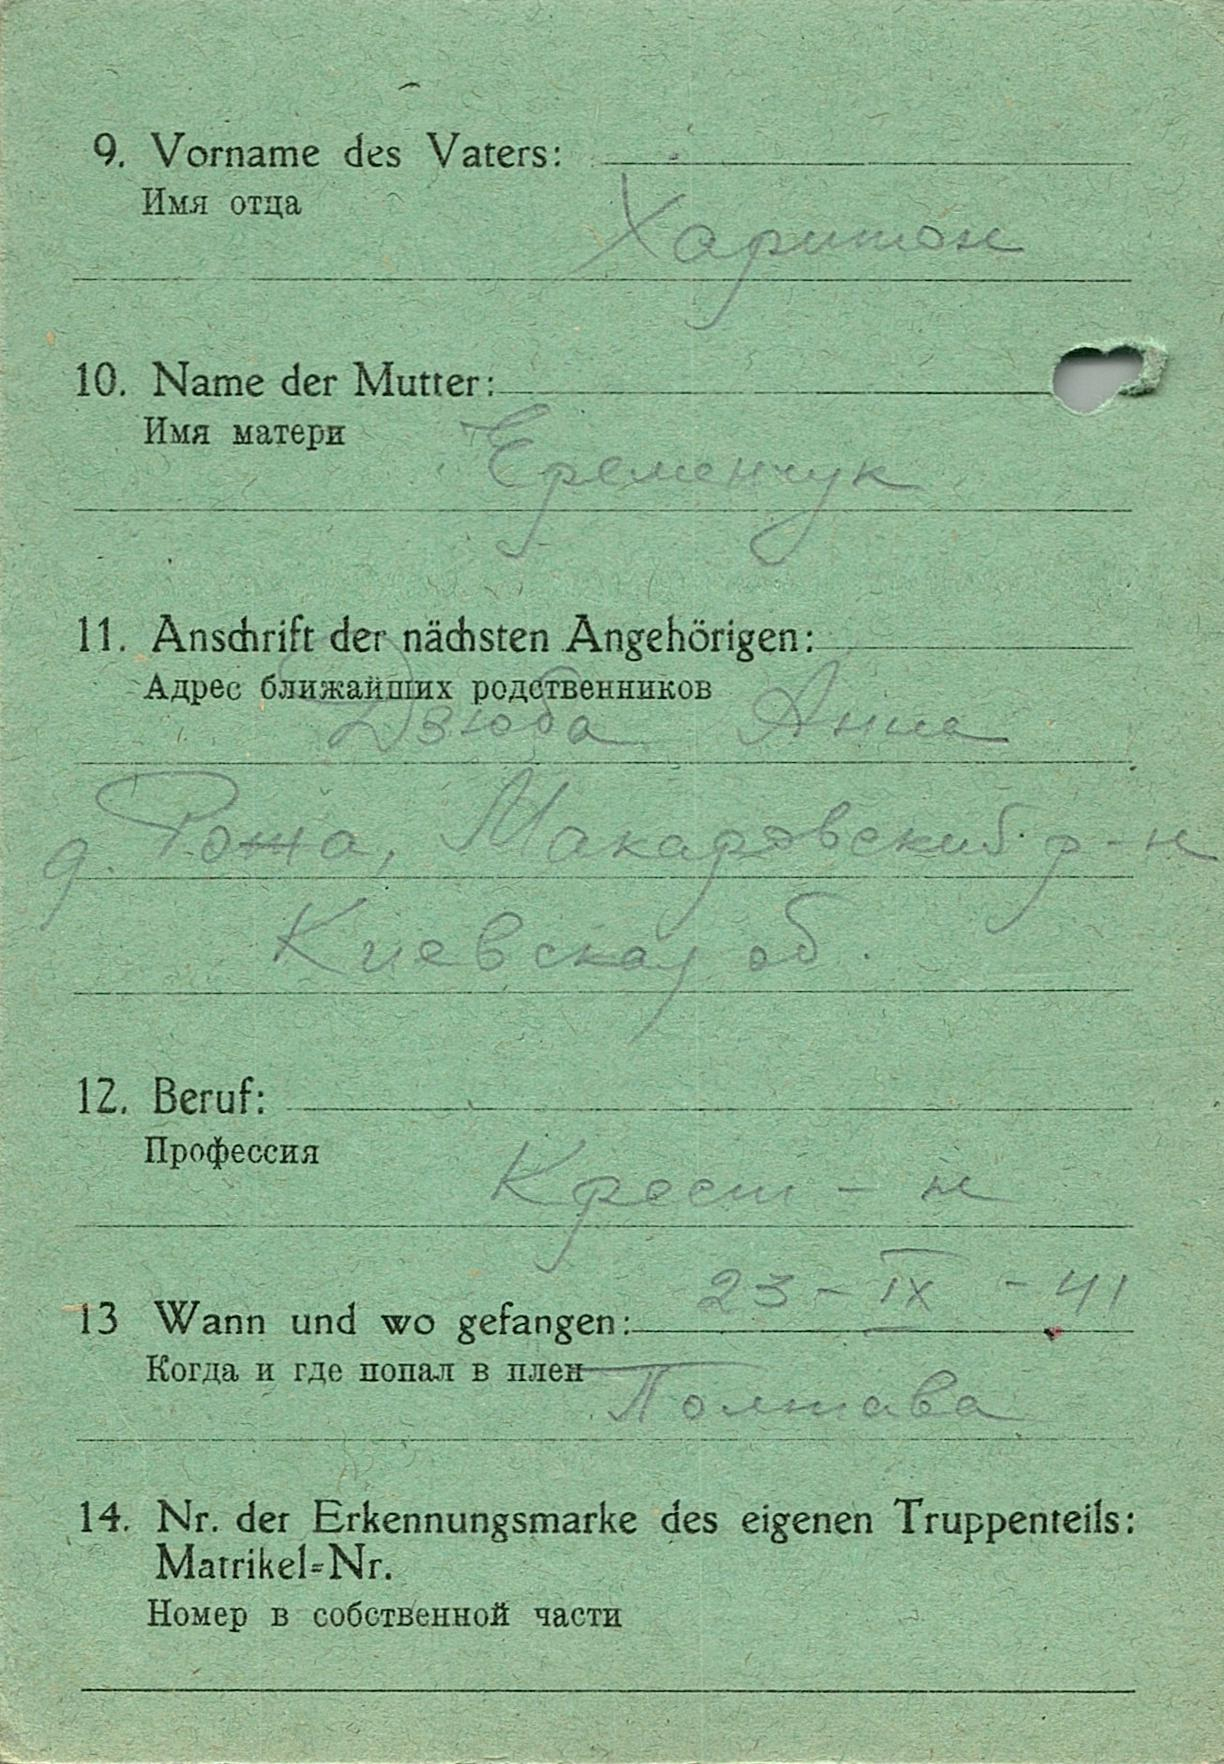 9. Vorname des Vaters:
Имя отца
Харитон
10. Name der Mutter:
Имя матери
Еременчук
11. Anschrift der nächsten Angehörigen:
Адрес ближайших родственников
Дзюба Анна
д. Рожа, Макаровский р-н
Киевская об.
12. Beruf:
Профессия
Крест-н
23-IX-41
13 Wann und wo gefangen:
Когда и где попал в плен
Полтава
14. Nr. der Erkennungsmarke des eigenen Truppenteils:
Matrikel-Nr.
Номер в собственной части